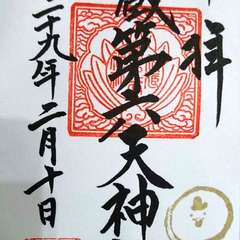 拝
蔵第六天神
二十九年二月十日